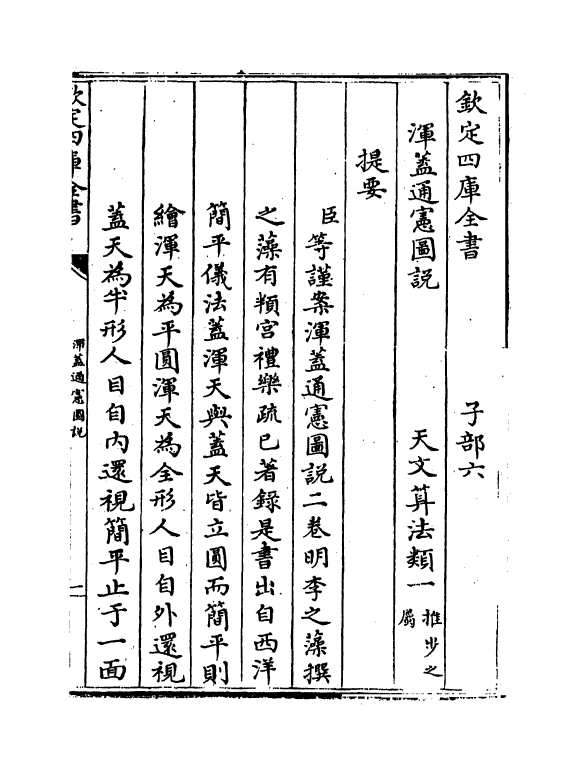 欽定四庫全書　子部六
渾蓋通憲圖説　天文算法類一推步之屬
提要
臣等謹案渾蓋通憲圖説二卷明李之藻撰
之藻有頖宮禮樂疏已著錄是書出自西洋
簡平儀法蓋渾天與蓋天皆立圓而簡平則
繪渾天為平圓渾天為全形人目自外還視
蓋天為半形人目自内還視簡平止于一面
欽定四庫全書
渾蓋通憲圖説
一